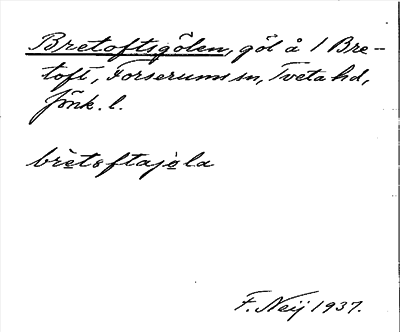 Bretoftsgölen, göl å 1 Bre-
toft, Forserums sn, Tveta hd,
Jönk. l.
brètoftajo̱la
F. Neij 1937.